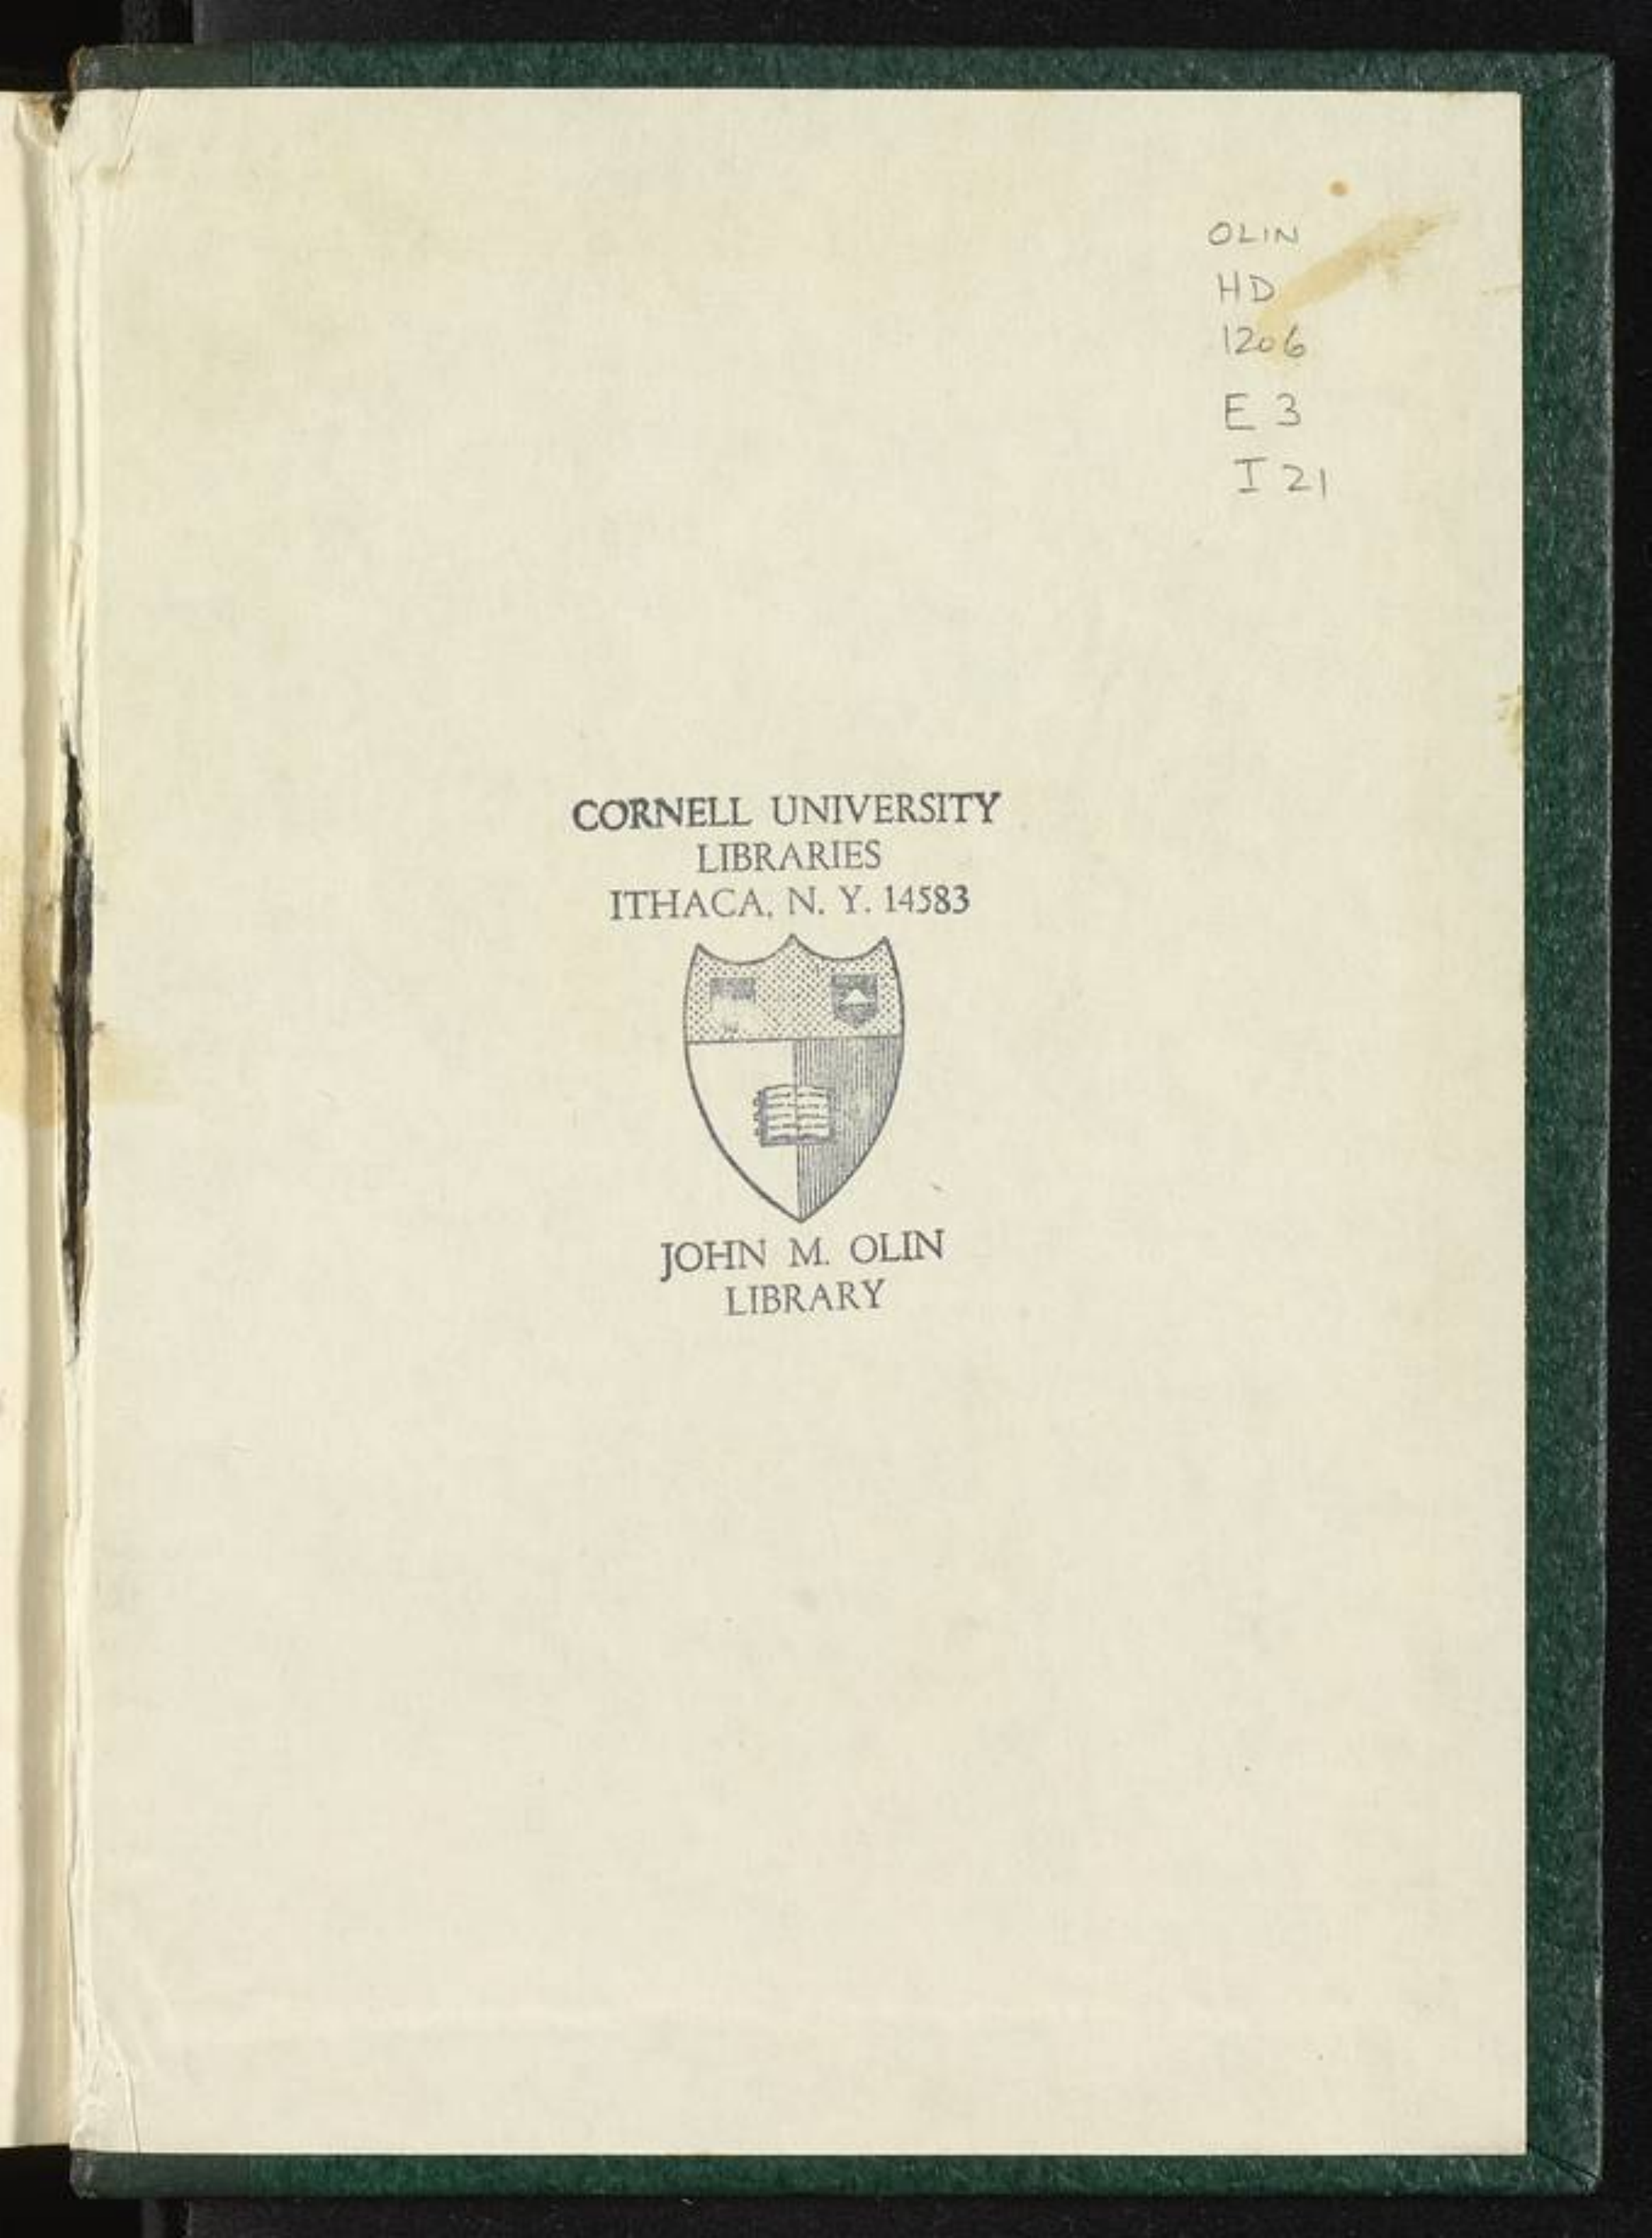 OLIN
HD
1206
E 3
I 21
CORNELL UNIVERSITY
LIBRARIES
ITHACA, N. Y. 14583
JOHN M. OLIN
LIBRARY